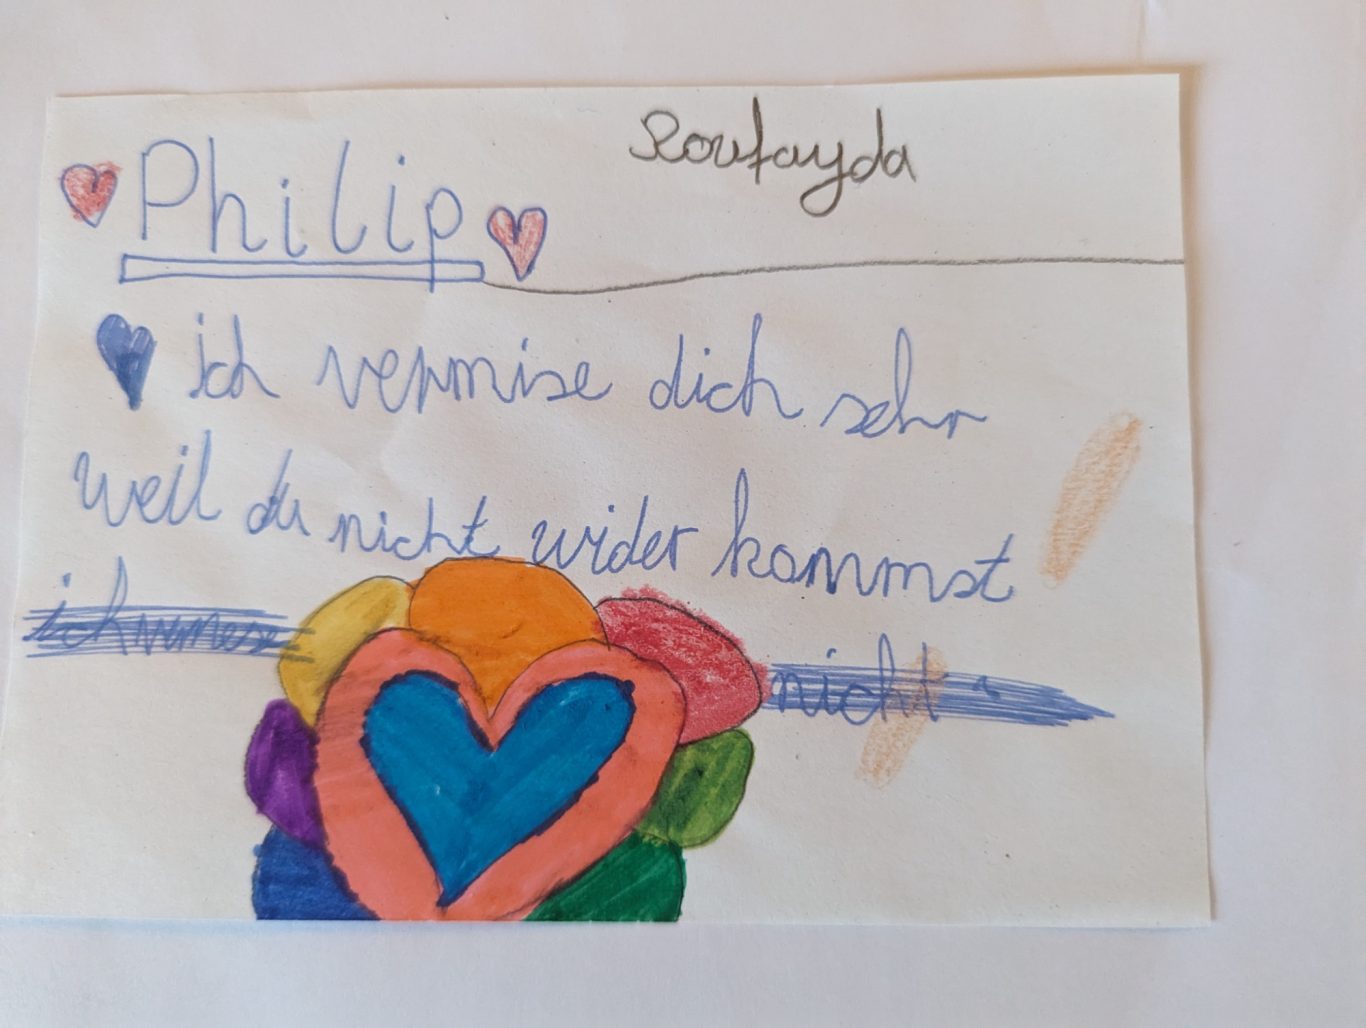 Roufayda
Philip
ich vermise dich sehr
weil du nicht wider kommst
nicht